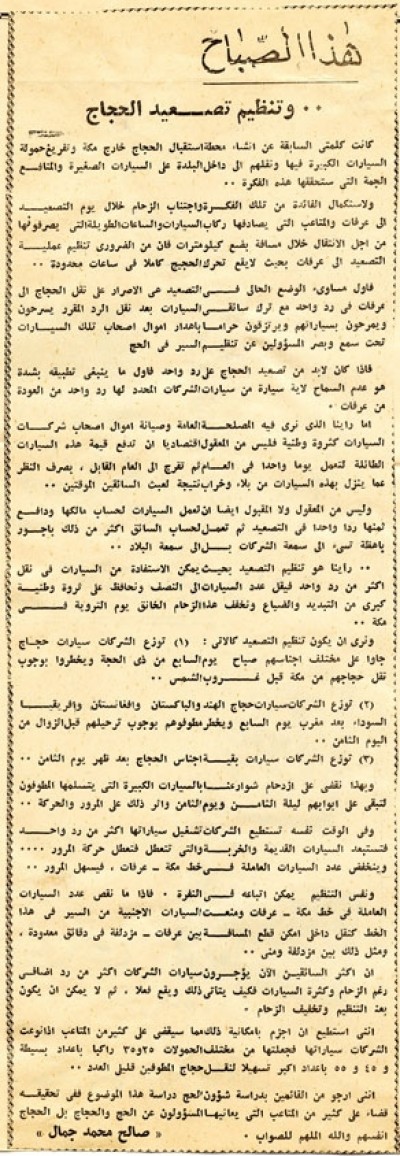 هذا الصباح
٠٠ وتنظيم تصعيد الحجاج
كانت كلمتى السابقة عن انشاء محطة استقبال الحجاج خارج مكة وتفريغ حمولة
السيارات الكبيرة فيها ونقلهم الى داخل البلدة على السيارات الصغيرة والمنافع
الجمة التى ستحققها هذه الفكرة ٠٠
ولاستكمال الفائدة من تلك الفكرة واجتناب الزحام خلال يوم التصعيد
الى عرفات والمتاعب التى يصادفها ركاب السيارات والساعات الطويلة التى يصرفونها
من اجل الانتقال خلال مسافة بضع كيلومترات فان من الضرورى تنظيم عملية
التصعيد الى عرفات بحيث لايقع تحرك الحجيج كاملا فى ساعات محدودة ٠٠
فاول مساوىء الوضع الحالى فى التصعيد هى الاصرار على نقل الحجاج الى
عرفات فى رد واحد مع ترك سائقى السيارات بعد نقل الرد المقرر يسرحون
ويمرحون بسياراتهم ويرتزقون حراما باهدار اموال اصحاب تلك السيارات
تحت سمع وبصر المسؤولين عن تنظيم السير فى الحج
فاذا كان لابد من تصعيد الحجاج على رد واحد فاول ما ينبغى تطبيقه بشدة
هو عدم السماح لاية سيارة من سيارات الشركات المحدد لها رد واحد من العودة
من عرفات ٠
اما راينا الذى نرى فيه المصلحة العامة وصيانة اموال اصحاب شركات
السيارات كثروة وطنية فليس من المعقول اقتصاديا ان تدفع قيمة هذه السيارات
الطائلة لتعمل يوما واحدا فى العام ثم تفرج الى العام القابل ، بصرف النظر
عما ينزل بهذه السيارات من بلاء وخراب نتيجة لعبث السائقين الموقتين ٠٠
وليس من المعقول ولا المقبول ايضا ان تعمل السيارات لحساب مالكها ودافع
ثمنها ردا واحدا فى التصعيد ثم تعمل لحساب السائق اكثر من ذلك باجور
باهظة تسىء الى سمعة الشركات بل الى سمعة البلاد ٠٠
٠٠ راينا هو تنظيم التصعيد بحيث يمكن الاستفادة من السيارات فى نقل
اكثر من رد واحد فيقل عدد السيارات الى النصف ونحافظ على ثروة وطنية
كبرى من التبديد والضياع ونخفف هذا الزحام الخانق يوم التروية فى
مكة ٠٠
ونرى ان يكون تنظيم التصعيد كالاتى : (١) توزع الشركات سيارات حجاج
جاوا على مختلف اجناسهم صباح يوم السابع من ذى الحجة ويخطروا بوجوب
نقل حجاجهم من مكة قبل غروب الشمس ٠٠
(٢) توزع الشركات سيارات حجاج الهند والباكستان وافغانستان وافريقيا
السوداء بعد مغرب يوم السابع ويخطر مطوفوهم بوجوب ترحيلهم قبل الزوال من
اليوم الثامن ٠٠
(٣) توزع الشركات سيارات بقية اجناس الحجاج بعد ظهر يوم الثامن ٠٠
وبهذا نقضى على ازدحام شوارعنا بالسيارات الكبيرة التى يتسلمها المطوفون
لتبقى على ابوابهم ليلة الثامن ويوم الثامن واثر ذلك على المرور والحركة ٠٠
وفى الوقت نفسه تستطيع الشركات تشغيل سياراتها اكثر من رد واحد
فتستبعد السيارات القديمة والخربة والتى تتعطل فتعطل حركة المرور ٠٠٠٠
وينخفض عدد السيارات العاملة فى خط مكة ـ عرفات ، فيسهل المرور ٠٠
ونفس التنظيم يمكن اتباعه فى النفرة ٠ فاذا ما نقص عدد السيارات
العاملة فى خط مكة ـ عرفات ومنعت السيارات الاجنبية من السير فى هذا
الخط كنقل داخلى امكن قطع المسافة بين عرفات ـ مزدلفة فى دقائق معدودة ،
ومثل ذلك بين مزدلفة ومنى ٠٠
ان اكثر السائقين الآن يؤجرون سيارات الشركات اكثر من رد اضافى
رغم الزحام وكثرة السيارات فكيف يتاتى ذلك ويقع فعلا ، ثم لا يمكن ان يكون
بعد التنظيم وتخفيف الزحام ٠
اننى استطيع ان اجزم بامكانية ذلك مما سيقضى على كثير من المتاعب اذا نوعت
الشركات سياراتها فجعلتها من مختلف الحمولات ٢٥ و٣٥ راكبا باعداد بسيطة
و ٤٥ و ٥٥ باعداد اكبر تسهيلا لنقل حجاج المطوفين قليلى العدد ٠٠
اننى ارجو من القائمين بدراسة شؤون الحج دراسة هذا الموضوع ففى تحقيقه
قضاء على كثير من المتاعب التى يعانيها المسؤولون عن الحج والحجاج بل الحجاج
انفسهم والله الملهم للصواب ٠
« صالح محمد جمال »